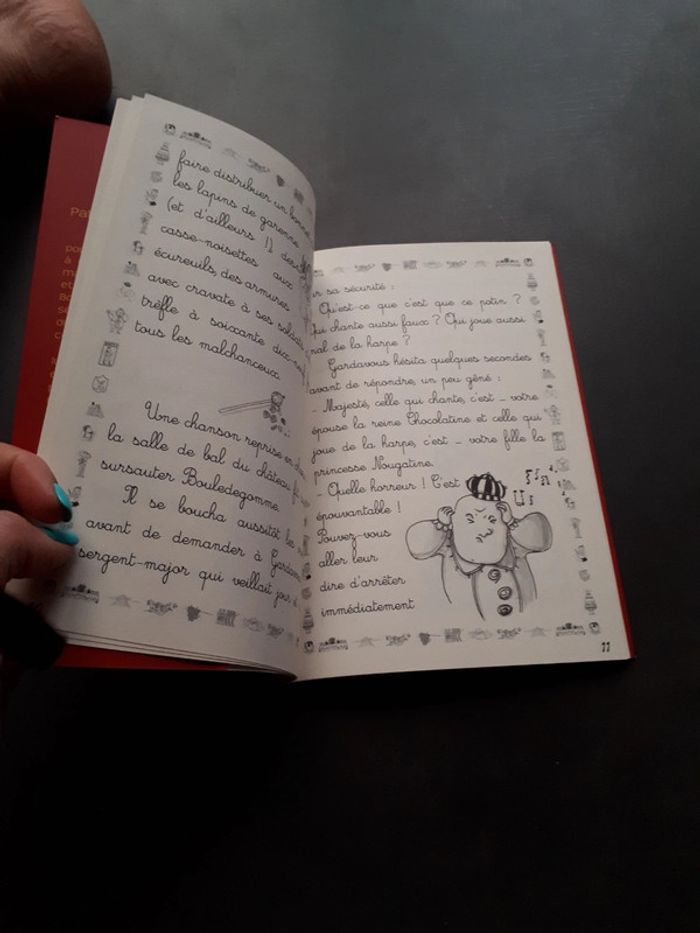 faire distribuer un bonne
les lapins de garenne
(et d'ailleurs !), des
casse-noisettes aux
écureuils, des armures
avec cravate à ses soldats
trèfle à soixante dix-neuf
tous les malchanceux.
Une chanson reprise en
la salle de bal du château
sursauter Bouledegomme.
Il se boucha aussitôt les
avant de demander à
sergent-major qui veillait jour
sa sécurité :
Qu'est-ce que c'est que ce potin ?
Qui chante aussi faux ? Qui joue aussi
mal de la harpe ?
Gardavous hésita quelques secondes
avant de répondre, un peu gêné :
- Majesté, celle qui chante, c'est ... votre
épouse la reine Chocolatine et celle qui
joue de la harpe, c'est ... votre fille la
princesse Nougatine.
- Quelle horreur ! C'est
épouvantable !
Pouvez-vous
aller leur
dire d'arrêter
immédiatement
11
Pa
po
à
m
et